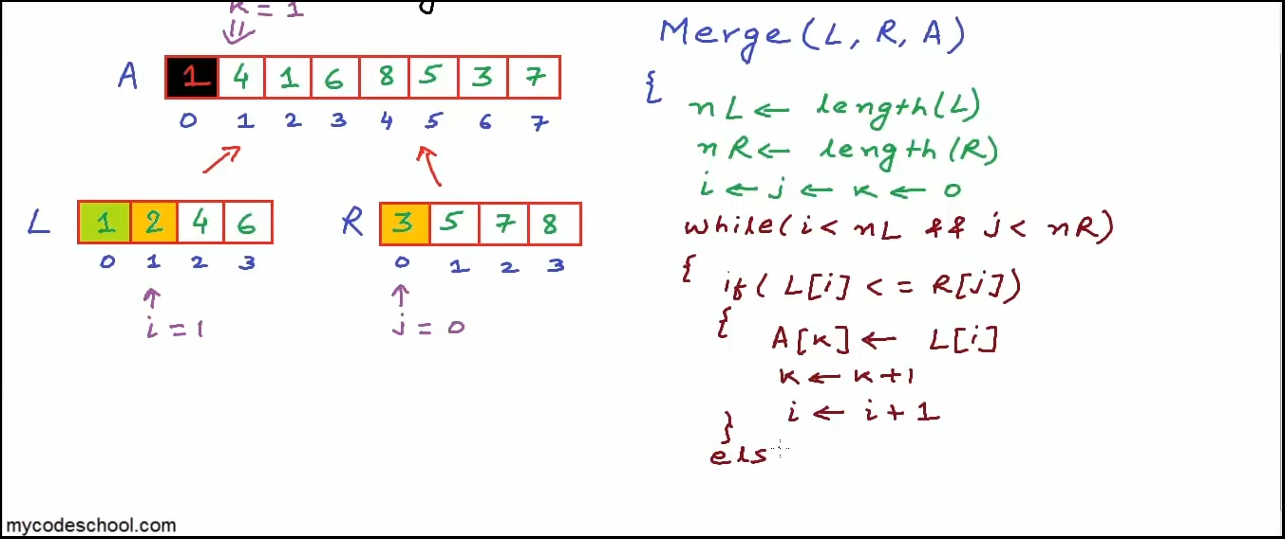 k = 1
A 1 4 1 6 8 5 3 7
0 1 2 3 4 5 6 7
L 1 2 4 6
0 1 2 3
i = 1
R 3 5 7 8
0 1 2 3
j = 0
Merge(L, R, A)
{
nL ← length(L)
nR ← length(R)
i ← j ← k ← 0
while(i < nL && j < nR)
{ if( L[i] <= R[j])
{ A[k] ← L[i]
k ← k+1
i ← i + 1
}
els
mycodeschool.com